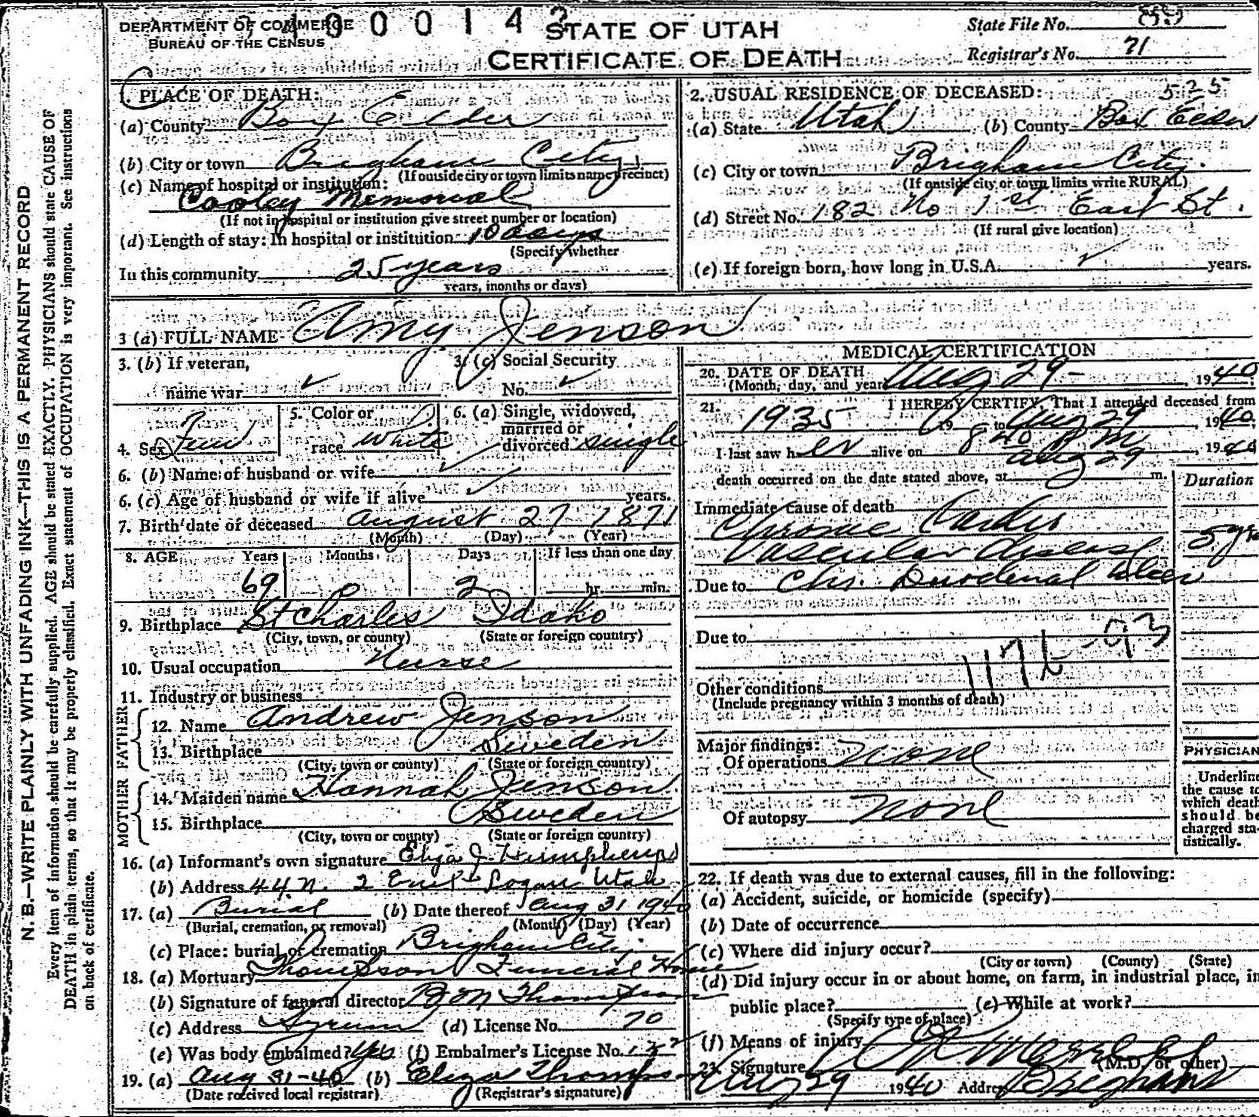 DEPARTMENT OF COMMERCE
BUREAU OF THE CENSUS
STATE OF UTAH
CERTIFICATE OF DEATH
State File No.
Registrar's No. 71
PLACE OF DEATH:
(a) County Box Elder
(b) City or town Brigham City
(If outside city or town limits name precinct)
(c) Name of hospital or institution:
Cooley Memorial
(If not in hospital or institution give street number or location)
(d) Length of stay: In hospital or institution 10 days
(Specify whether
In this community 25 years
years, months or days)
2. USUAL RESIDENCE OF DECEASED: 525
(a) State Utah (b) County Box Elder
(c) City or town Brigham City.
(If outside city or town limits write RURAL)
(d) Street No. 182 No 1st East St.
(If rural give location)
(e) If foreign born, how long in U.S.A. ✓ years.
3 (a) FULL NAME Amy Jenson
3. (b) If veteran, name war ✓
3. (c) Social Security No. ✓
4. Sex Fem
5. Color or race White
6. (a) Single, widowed, married or divorced single
6. (b) Name of husband or wife ✓
6. (c) Age of husband or wife if alive ✓ years.
7. Birth date of deceased August 27 1871
(Month) (Day) (Year)
8. AGE Years Months Days If less than one day
69 2 hr. min.
9. Birthplace St Charles Idaho
(City, town, or county) (State or foreign country)
10. Usual occupation Nurse
11. Industry or business
FATHER
12. Name Andrew Jenson
13. Birthplace Sweden
(City, town or county) (State or foreign country)
MOTHER
14. Maiden name Hannah Jenson
15. Birthplace Sweden
(City, town or county) (State or foreign country)
16. (a) Informant's own signature Eliza J. Humpherys
(b) Address 44 N. 2 East Logan Utah
17. (a) Burial (b) Date thereof Aug 31 1940
(Burial, cremation, or removal) (Month) (Day) (Year)
(c) Place: burial or cremation Brigham City
18. (a) Mortuary Thompson Funeral Home
(b) Signature of funeral director Thompson
(c) Address Hyrum (d) License No. 70
(e) Was body embalmed? Yes (f) Embalmer's License No.
19. (a) Aug 31-40 (b) Eliza Thompson
(Date received local registrar) (Registrar's signature)
MEDICAL CERTIFICATION
20. DATE OF DEATH
(Month, day, and year) Aug 29 - , 1940
21. I HEREBY CERTIFY, That I attended deceased from
1935 19 to Aug 29, 1940
I last saw her alive on Aug 29, 1940
death occurred on the date stated above, at 8 40 P.M. m.
Duration
Immediate cause of death
Chronic Cardio
Vascular disease 5 yrs
Due to Chr. Duodenal Ulcer
Due to
Other conditions
(Include pregnancy within 3 months of death)
Major findings:
Of operations none
Of autopsy none
PHYSICIAN
Underline
the cause to
which death
should be
charged sta-
tistically.
22. If death was due to external causes, fill in the following:
(a) Accident, suicide, or homicide (specify)
(b) Date of occurrence
(c) Where did injury occur?
(City or town) (County) (State)
(d) Did injury occur in or about home, on farm, in industrial place, in
public place? (e) While at work?
(Specify type of place)
(f) Means of injury
23. Signature (M.D. or other)
Aug 29 1940 Address Brigham
N. B.—WRITE PLAINLY WITH UNFADING INK—THIS IS A PERMANENT RECORD
Every item of information should be carefully supplied. AGE should be stated EXACTLY. PHYSICIANS should state CAUSE OF
DEATH in plain terms, so that it may be properly classified. Exact statement of OCCUPATION is very important. See instructions
on back of certificate.